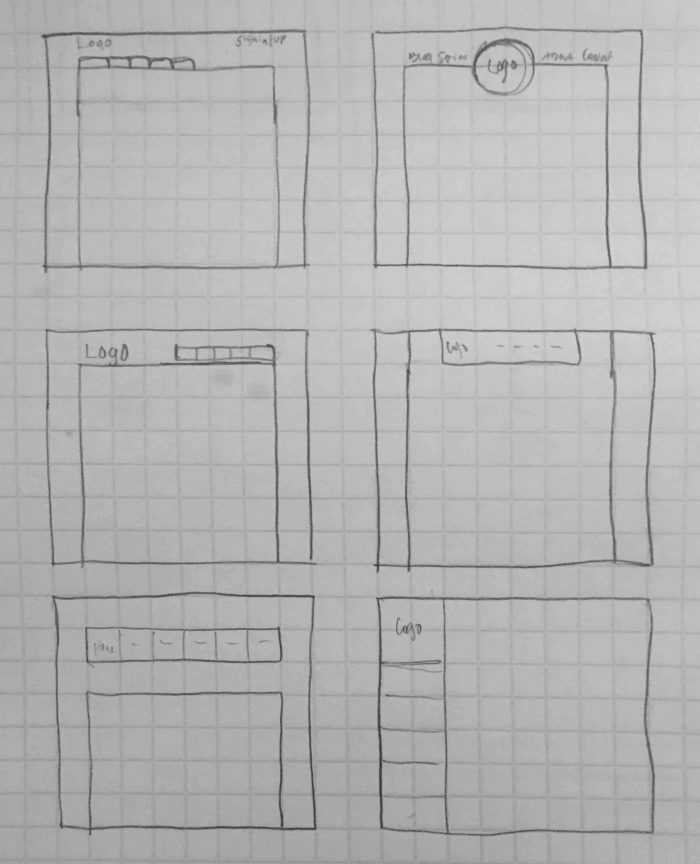 Logo
Sign in/up
Blog
Logo
About Contact
Logo
Logo
Logo